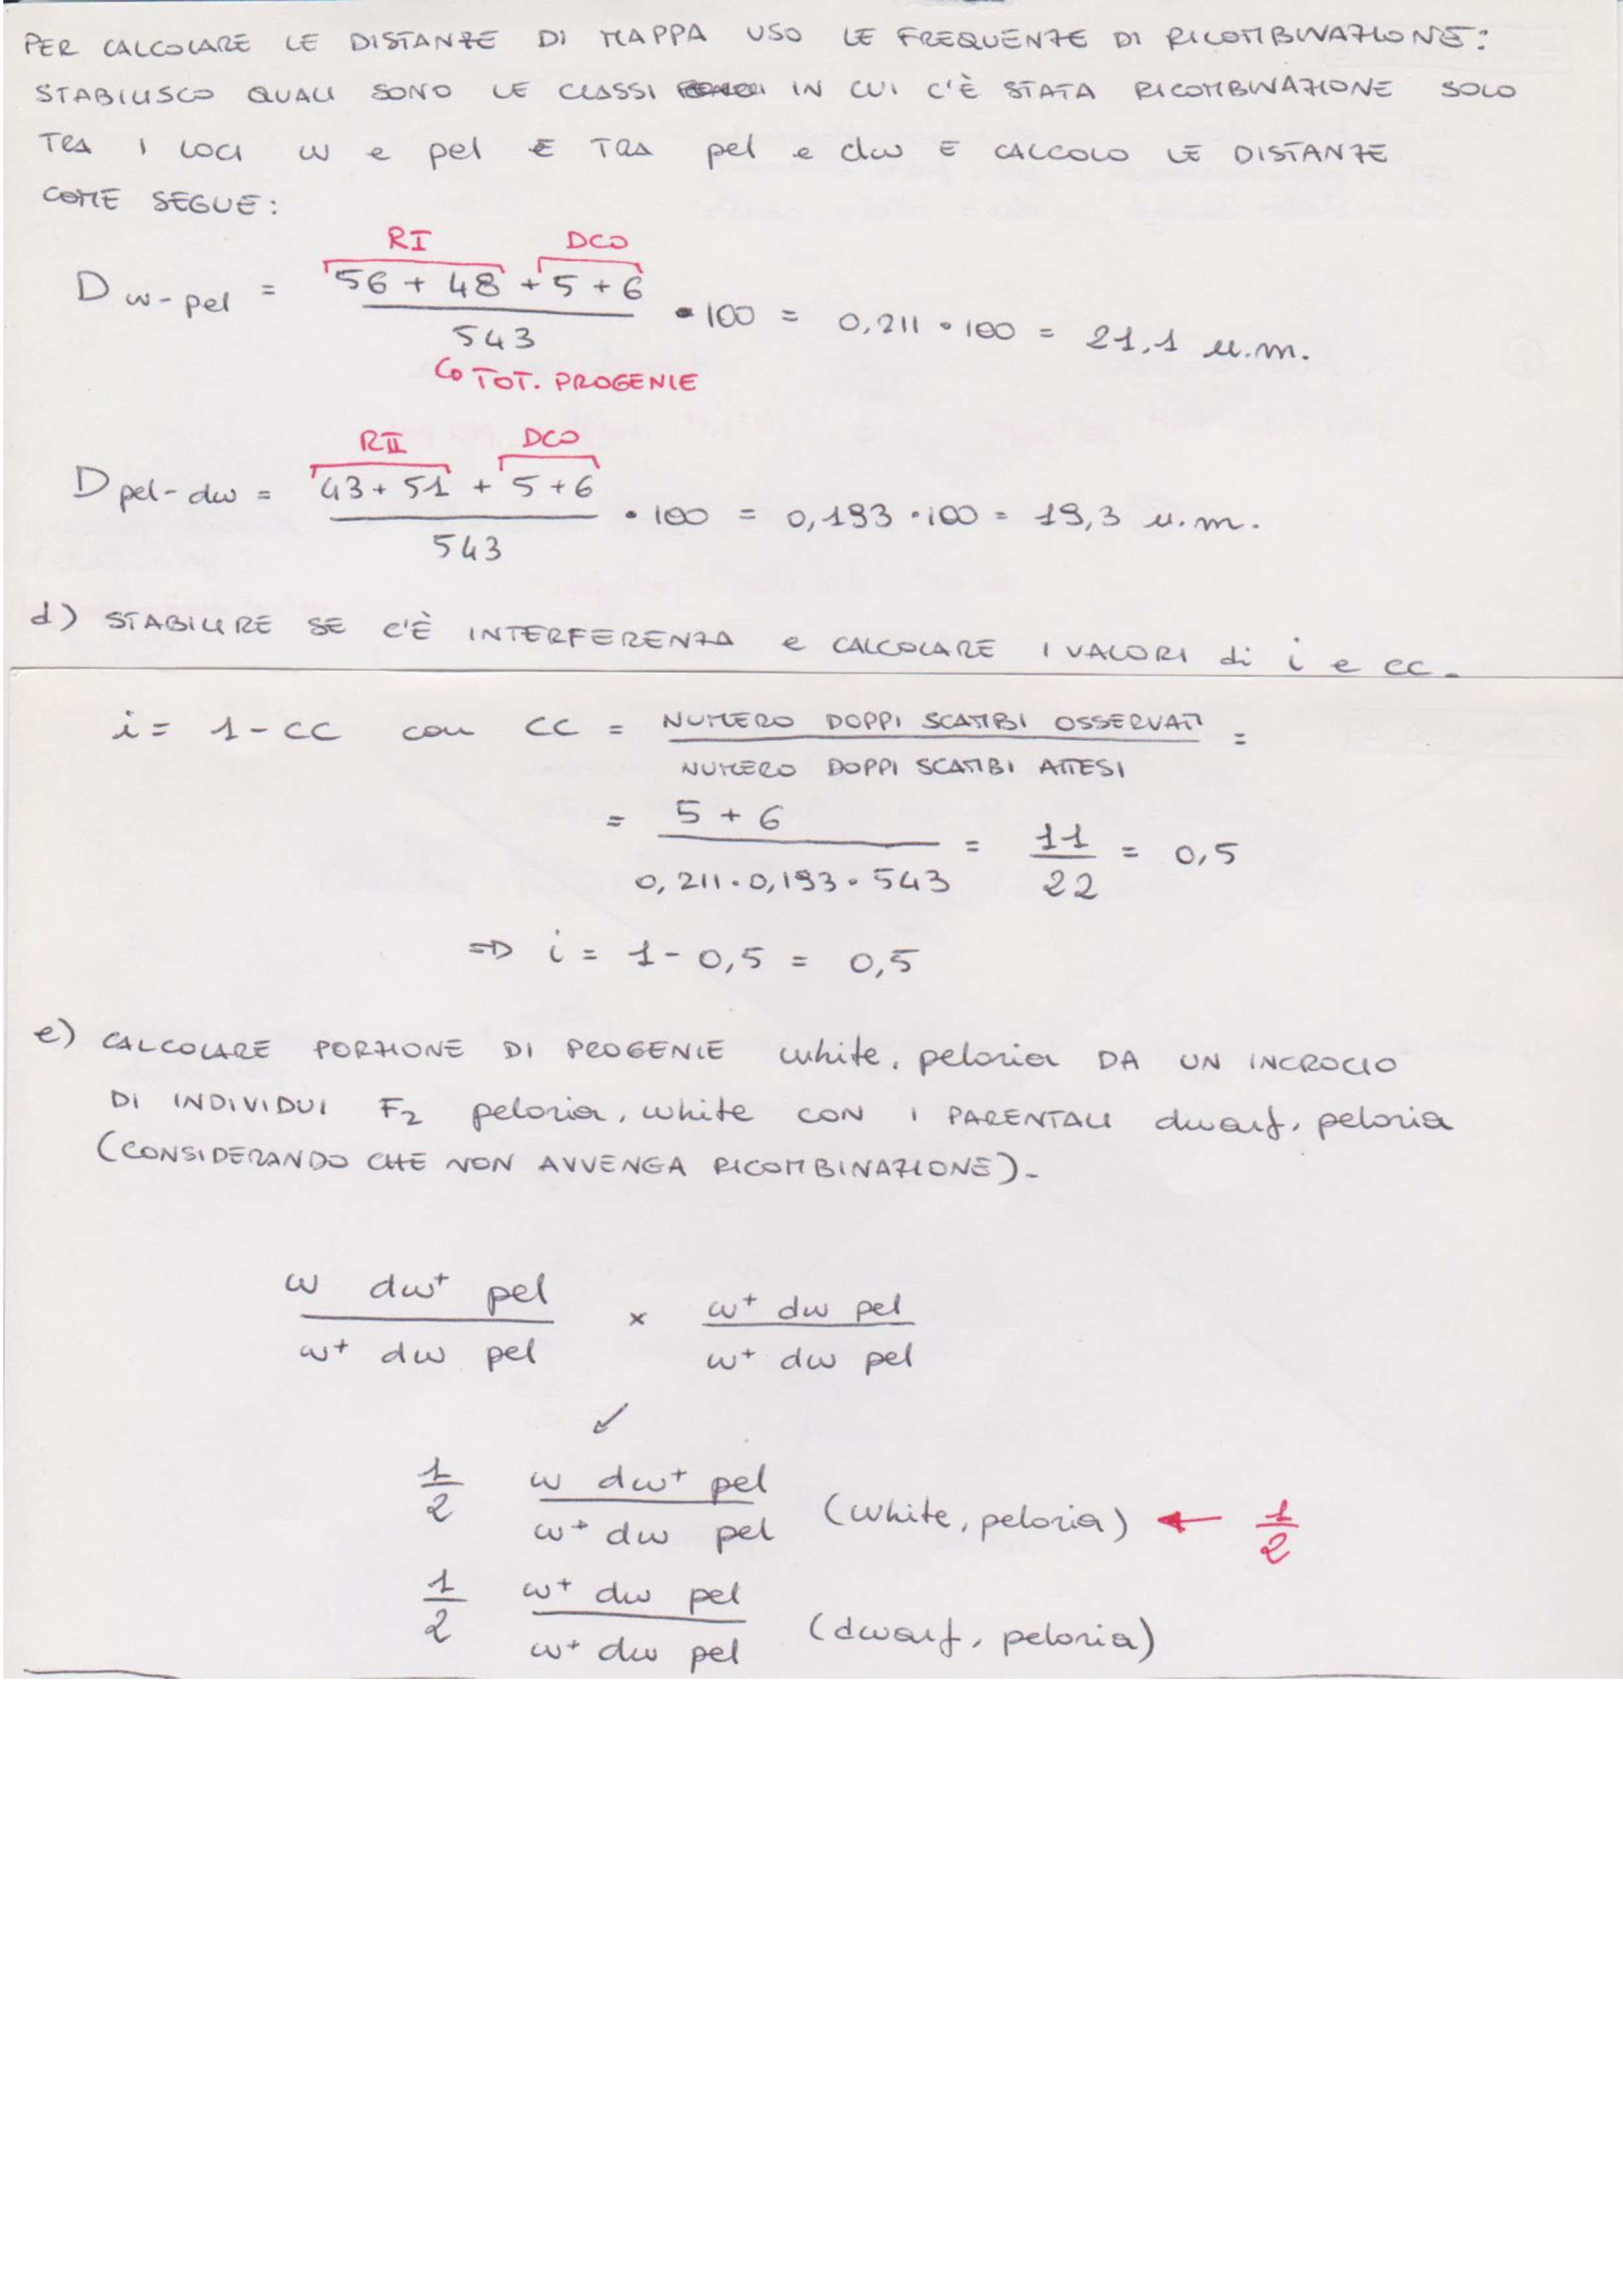 PER CALCOLARE LE DISTANZE DI MAPPA USO LE FREQUENZE DI RICOMBINAZIONE:
STABILISCO QUALI SONO LE CLASSI IN CUI C'È STATA RICOMBINAZIONE SOLO
TRA I LOCI w e pel E TRA pel e dw E CALCOLO LE DISTANZE
COME SEGUE:
RI DCO
D w-pel = 56 + 48 + 5 + 6 / 543 • 100 = 0,211 • 100 = 21,1 u.m.
TOT. PROGENIE
RII DCO
D pel-dw = 43 + 51 + 5 + 6 / 543 • 100 = 0,193 • 100 = 19,3 u.m.
d) STABILIRE SE C'È INTERFERENZA e CALCOLARE I VALORI di i e cc.
i = 1 - CC con CC = NUMERO DOPPI SCAMBI OSSERVATI / NUMERO DOPPI SCAMBI ATTESI =
= 5 + 6 / 0,211 • 0,193 • 543 = 11 / 22 = 0,5
⇒ i = 1 - 0,5 = 0,5
e) CALCOLARE PORZIONE DI PROGENIE white, peloria DA UN INCROCIO
DI INDIVIDUI F2 peloria, white CON I PARENTALI dwarf, peloria
(CONSIDERANDO CHE NON AVVENGA RICOMBINAZIONE).
w dw+ pel × w+ dw pel
w+ dw pel w+ dw pel
1/2 w dw+ pel / w+ dw pel (white, peloria) ← 1/2
1/2 w+ dw pel / w+ dw pel (dwarf, peloria)